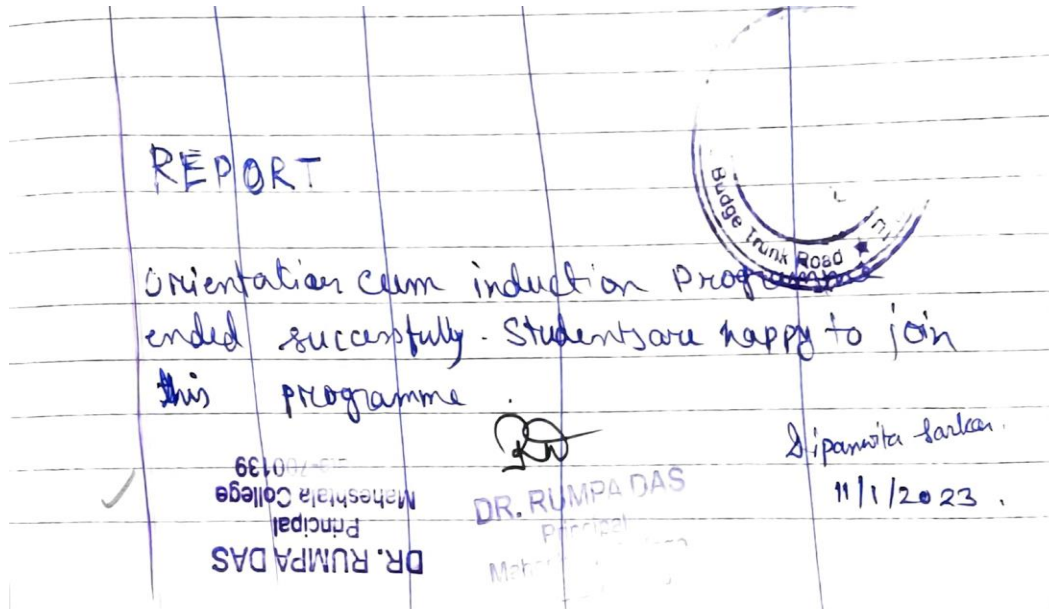 REPORT
Budge Trunk Road ★
Orientation cum induction Programme
ended successfully. Students are happy to join
this programme.
Dipanwita Sarkar.
11/1/2023.
DR. RUMPA DAS
Principal
DR. RUMPA DAS
Principal
Maheshtala College
700139